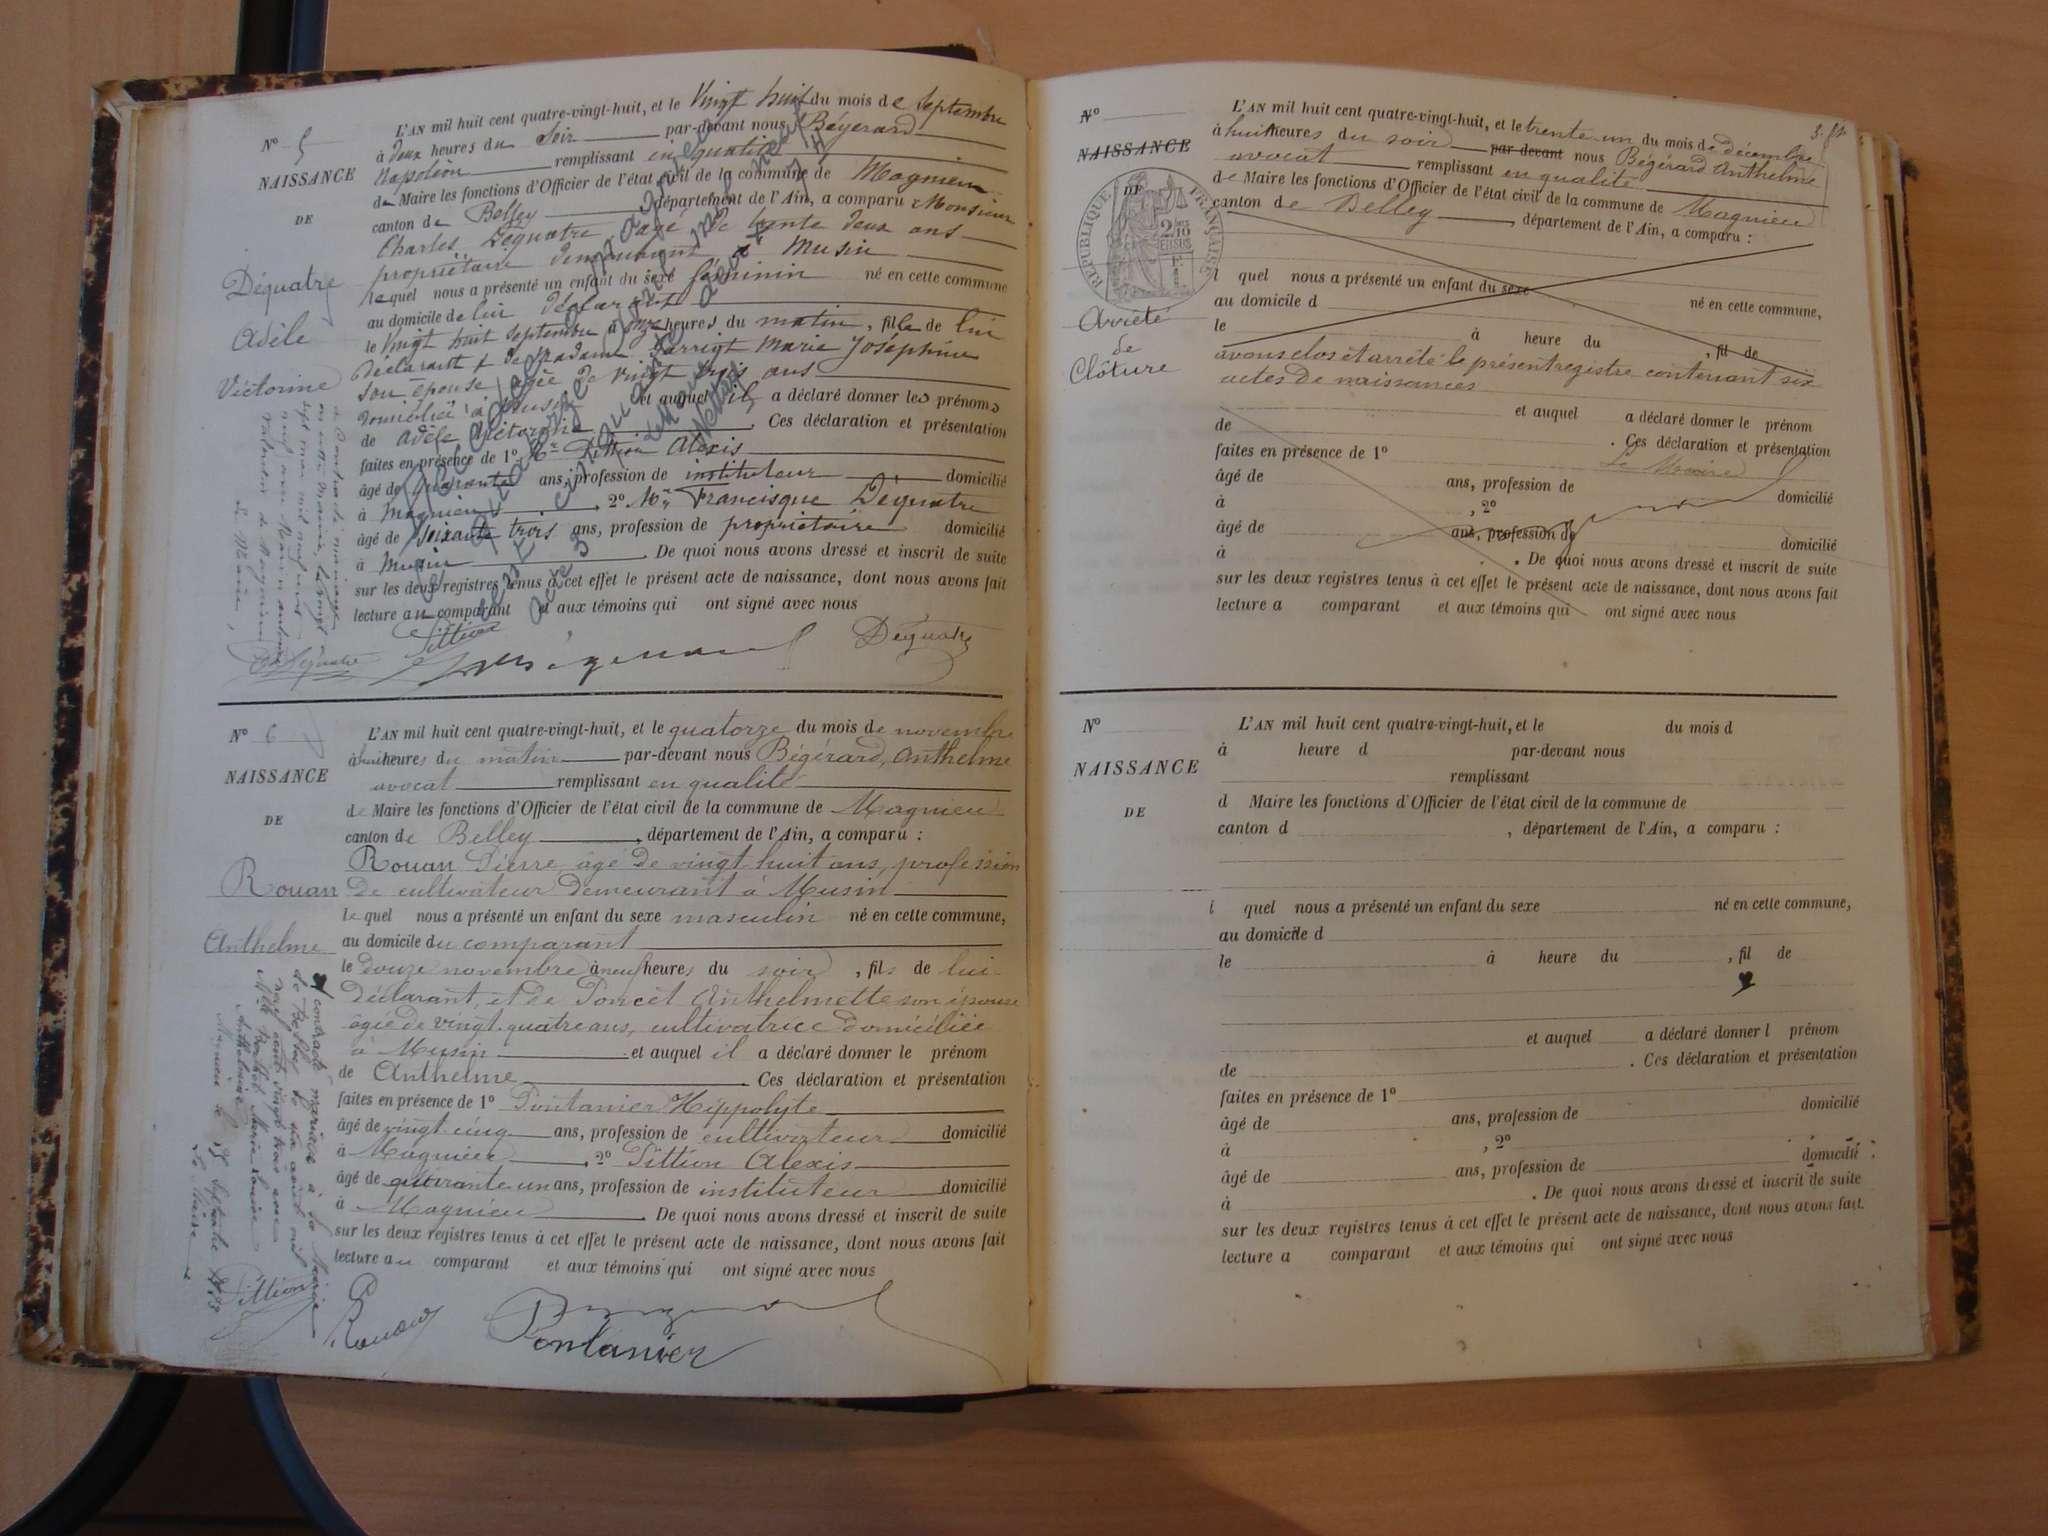 N° 5
NAISSANCE
DE
Déquatre
Adèle
Victorine
L'AN mil huit cent quatre-vingt-huit, et le Vingt huit du mois de Septembre
à deux heures du Soir par-devant nous Bégerard
Napoléon remplissant en qualité
de Maire les fonctions d'Officier de l'état civil de la commune de Magnieu
canton de Belley département de l'Ain, a comparu Monsieur
Charles Déquatre âgé de trente deux ans
propriétaire demeurant à Musin
lequel nous a présenté un enfant du sexe féminin né en cette commune
au domicile de lui déclarant
le Vingt huit Septembre à onze heures du matin, fille de lui
déclarant & de Madame Marie Joséphine
son épouse âgée de vingt trois ans
domiciliée à Musin et auquel il a déclaré donner les prénoms
de Adèle Victorine. Ces déclaration et présentation
faites en présence de 1° Mr Pittion Alexis
âgé de quarante ans, profession de instituteur domicilié
à Magnieu, 2° Mr Francisque Déquatre
âgé de soixante trois ans, profession de propriétaire domicilié
à Musin. De quoi nous avons dressé et inscrit de suite
sur les deux registres tenus à cet effet le présent acte de naissance, dont nous avons fait
lecture au comparant et aux témoins qui ont signé avec nous
Pittion
Déquatre
N° 6
NAISSANCE
DE
Rouan
Anthelme
L'AN mil huit cent quatre-vingt-huit, et le quatorze du mois de novembre
à huit heures du matin par-devant nous Bégérard, Anthelme
avocat remplissant en qualité
de Maire les fonctions d'Officier de l'état civil de la commune de Magnieu
canton de Belley, département de l'Ain, a comparu :
Rouan Pierre, âgé de vingt huit ans, profession
de cultivateur demeurant à Musin
lequel nous a présenté un enfant du sexe masculin né en cette commune,
au domicile du comparant
le douze novembre à neuf heures du soir, fils de lui
déclarant, et de Poncet Anthelmette son épouse
âgée de vingt-quatre ans, cultivatrice domiciliée
à Musin et auquel il a déclaré donner le prénom
de Anthelme. Ces déclaration et présentation
faites en présence de 1° Pontanier Hippolyte
âgé de vingt cinq ans, profession de cultivateur domicilié
à Magnieu, 2° Pittion Alexis
âgé de quarante un ans, profession de instituteur domicilié
à Magnieu. De quoi nous avons dressé et inscrit de suite
sur les deux registres tenus à cet effet le présent acte de naissance, dont nous avons fait
lecture au comparant et aux témoins qui ont signé avec nous
Pittion
Rouan
Pontanier
N°
NAISSANCE
DE
RÉPUBLIQUE FRANÇAISE
Arrêté
de
Clôture
L'AN mil huit cent quatre-vingt-huit, et le trente un du mois de décembre
à huit heures du soir par devant nous Bégérard Anthelme
avocat remplissant en qualité
de Maire les fonctions d'Officier de l'état civil de la commune de Magnieu
canton de Belley, département de l'Ain, a comparu :
l quel nous a présenté un enfant du sexe
au domicile d né en cette commune,
le à heure du , fil de
avons clos et arrêté le présent registre contenant six
actes de naissances
et auquel a déclaré donner le prénom
de . Ces déclaration et présentation
faites en présence de 1° Le Maire
âgé de ans, profession de domicilié
à , 2°
âgé de ans, profession de domicilié
à . De quoi nous avons dressé et inscrit de suite
sur les deux registres tenus à cet effet le présent acte de naissance, dont nous avons fait
lecture a comparant et aux témoins qui ont signé avec nous
N°
NAISSANCE
DE
L'AN mil huit cent quatre-vingt-huit, et le du mois d
à heure d par-devant nous
remplissant
d Maire les fonctions d'Officier de l'état civil de la commune de
canton d , département de l'Ain, a comparu :
l quel nous a présenté un enfant du sexe né en cette commune,
au domicile d
le à heure du , fil de
et auquel a déclaré donner l prénom
de . Ces déclaration et présentation
faites en présence de 1°
âgé de ans, profession de domicilié
à , 2°
âgé de ans, profession de domicilié
à . De quoi nous avons dressé et inscrit de suite
sur les deux registres tenus à cet effet le présent acte de naissance, dont nous avons fait
lecture a comparant et aux témoins qui ont signé avec nous